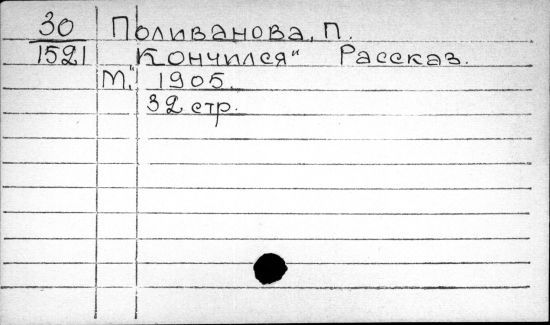 30 Поливанова, П.
1521 „Кончился“ Рассказ.
М. 1905.
32 стр.